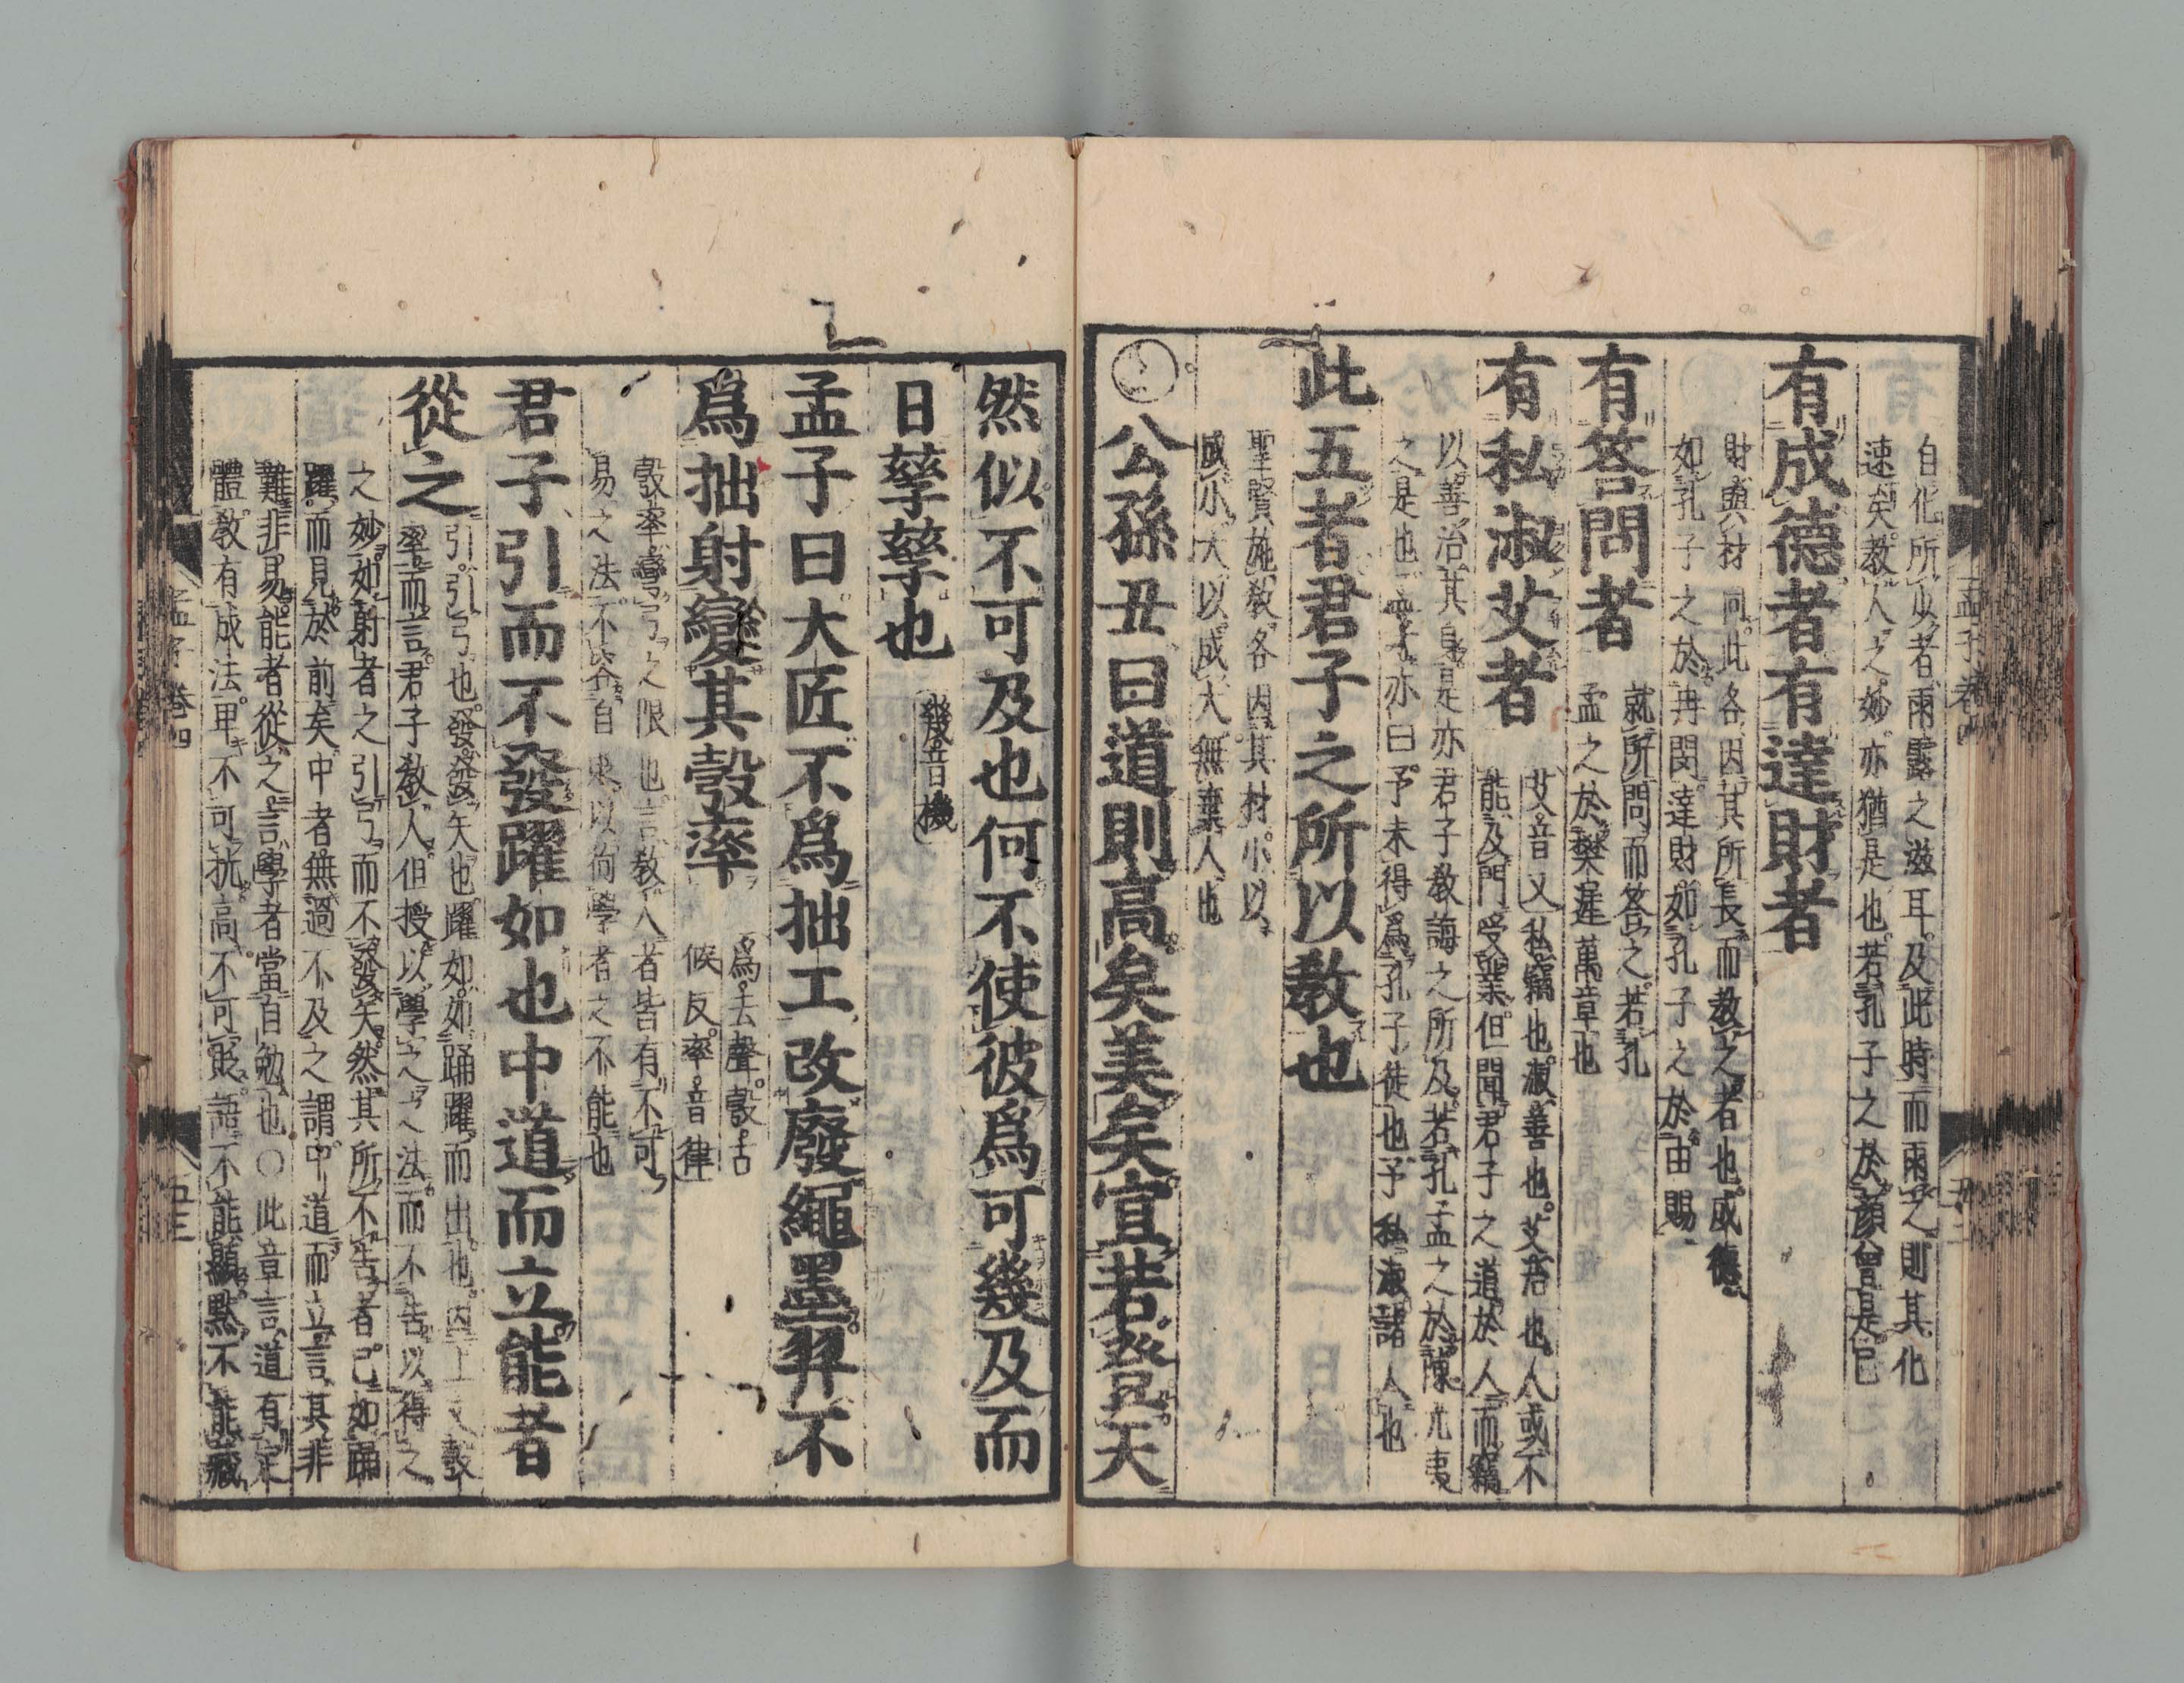 自化所少者雨露之滋耳及此時而雨之則其化
速矣教人之妙亦猶是也若孔子之於顏曾是已
有成德者有達財者
財與材同此各因其所長而教之者也成德
如孔子之於冉閔達財如孔子之於由賜
有答問者
就所問而答之若孔
孟之於樊遲萬章也
有私淑艾者
艾音乂私竊也淑善也艾治也人或不
能及門受業但聞君子之道於人而竊
以善治其身是亦君子教誨之所及若孔孟之於陳亢夷
之是也孟子亦曰予未得爲孔子徒也予私淑諸人也
此五者君子之所以教也
聖賢施教各因其材小以
成小大以成大無棄人也
○公孫丑曰道則高矣美矣宜若登天
孟子卷四
然似不可及也何不使彼爲可幾及而
日孳孳也
幾音機
孟子曰大匠不爲拙工改廢繩墨羿不
爲拙射變其彀率
爲去聲彀古
候反率音律
彀率彎弓之限也言教人者皆有不可
易之法不容自貶以徇學者之不能也
君子引而不發躍如也中道而立能者
從之
引引弓也發發矢也躍如如踊躍而出也因上文彀
率而言君子教人但授以學之之法而不告以得之
之妙如射者之引弓而不發矢然其所不告者已如踊
躍而見於前矣中者無過不及之謂中道而立言其非
難非易能者從之言學者當自勉也○此章言道有定
體教有成法卑不可抗高不可貶語不能顯默不能藏
孟子 卷四
五十三